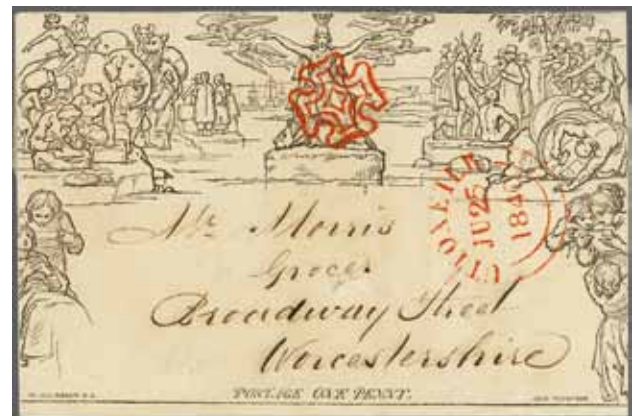 UTTOXETER
JU 25
1840
Mr. Morris
Grocer
Broadway Street
Worcestershire
POSTAGE ONE PENNY.